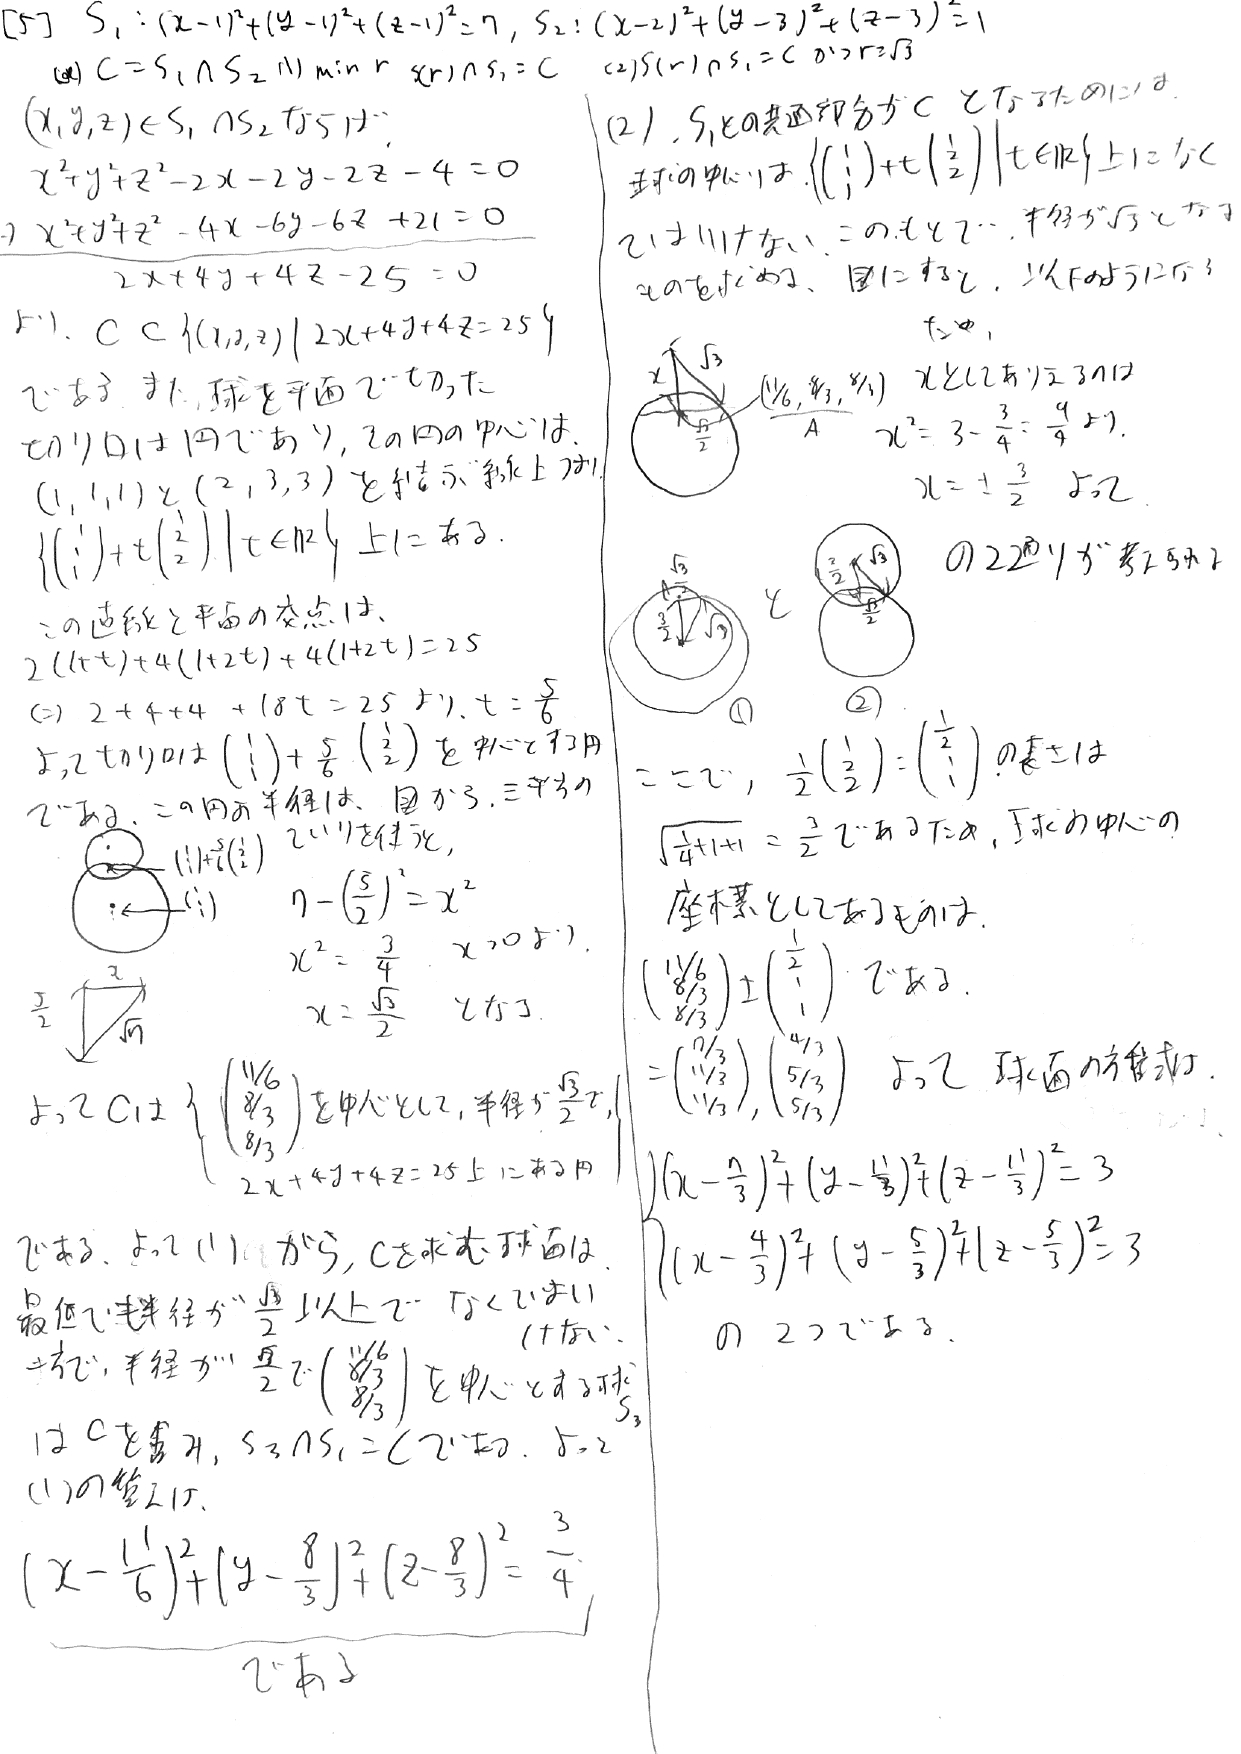 [5] S₁:(x-1)²+(y-1)²+(z-1)²=7, S₂:(x-2)²+(y-3)²+(z-3)²=1
C=S₁∩S₂ (1) min r S(r)∩S₁=C (2) S(r)∩S₁=C かつ r=√3
(x,y,z)∈S₁∩S₂ならば、
x²+y²+z²-2x-2y-2z-4=0
-) x²+y²+z²-4x-6y-6z+21=0
2x+4y+4z-25=0
より、C⊂{(x,y,z)|2x+4y+4z=25}
である。また、球を平面で切った
切り口は円であり、その円の中心は、
(1,1,1)と(2,3,3)を結ぶ線上つまり
{(1 1 1)+t(1 2 2)|t∈ℝ}上にある.
この直線と平面の交点は、
2(1+t)+4(1+2t)+4(1+2t)=25
(=) 2+4+4+18t=25より、t=5/6
よって切り口は(1 1 1)+5/6(1 2 2)を中心とする円
である。この円の半径は、図から、三平方の
ていりを使うと,
(1 1 1)+5/6(1 2 2)
(1 1 1)
7-(5/2)²=x²
x²=3/4 x>0より、
x=√3/2 となる.
x
5/2
√7
よってCは{(11/6 8/3 8/3)を中心として,半径が√3/2で,
2x+4y+4z=25上にある円}
である。よって(1) がら,Cを求む球面は
最低でも半径が√3/2以上でなくてはい
けない.
一方で,半径が√3/2で(11/6 8/3 8/3)を中心とする球
S₃
はCを含み,S₃∩S₁=Cである.よって
(1)の答えは、
(x-11/6)²+(y-8/3)²+(z-8/3)²=3/4
である
(2).S₁との共通部分がCとなるためには、
球の中心は、{(1 1 1)+t(1 2 2)|t∈ℝ}上になく
てはいけない、このもとで、半径が√3となる
ものを求める、図にすると、以下のようになる
ため,
x
√3
√3/2
(11/6, 8/3, 8/3)
A
xとしてありえるのは
x²=3-3/4=9/4より、
x=±3/2 よって
√3/2
A
3/2
√3
①
と
3/2
√3
√3/2
②
の2通りが考えられる
ここで,1/2(1 2 2)=(1/2 1 1)の長さは
√(1/4+1+1)=3/2であるため,球の中心の
座標としてあるものは、
(11/6 8/3 8/3)±(1/2 1 1)である.
=(7/3 11/3 11/3),(4/3 5/3 5/3) よって 球面の方程式は.
(x-7/3)²+(y-11/3)²+(z-11/3)²=3
(x-4/3)²+(y-5/3)²+(z-5/3)²=3
の2つである.